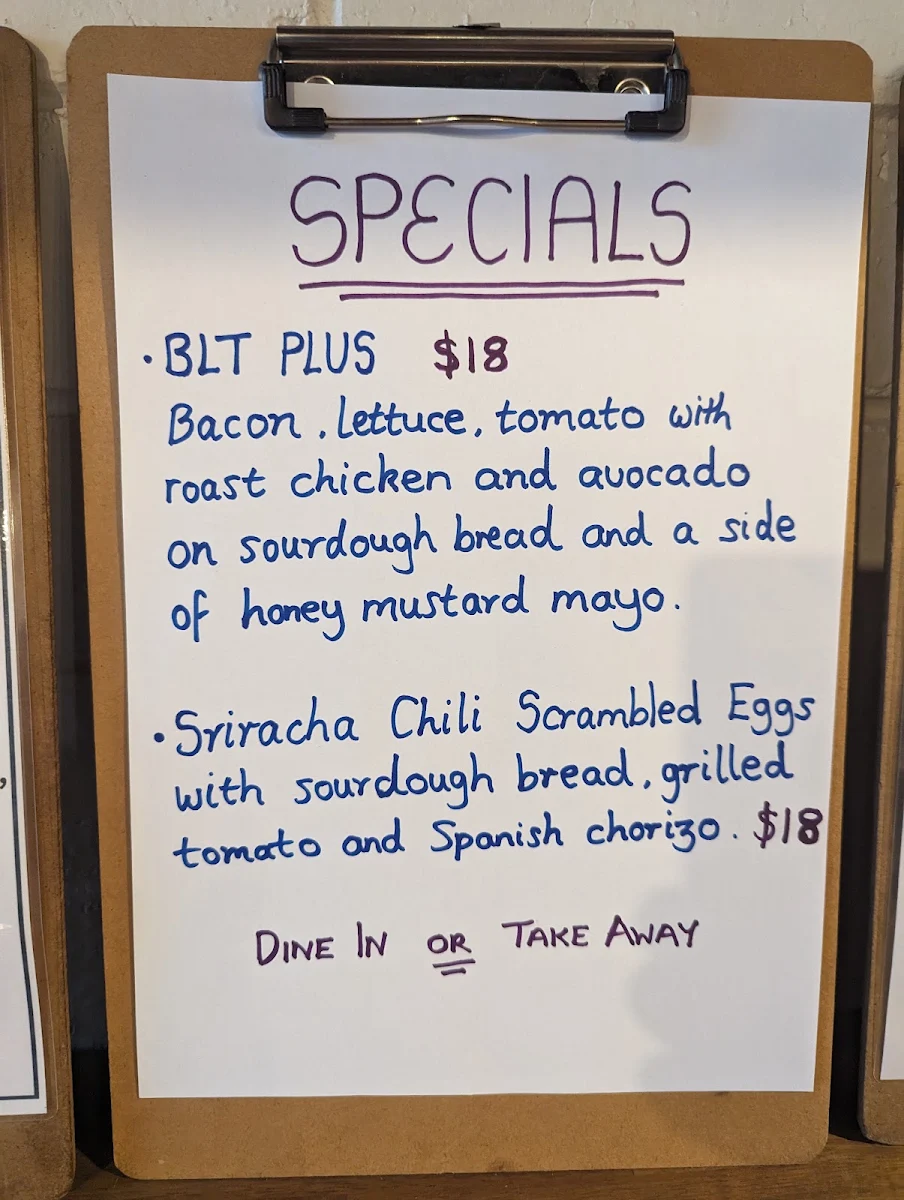 SPECIALS
· BLT PLUS $18
Bacon, lettuce, tomato with
roast chicken and avocado
on sourdough bread and a side
of honey mustard mayo.
· Sriracha Chili Scrambled Eggs
with sourdough bread, grilled
tomato and Spanish chorizo. $18
DINE IN OR TAKE AWAY